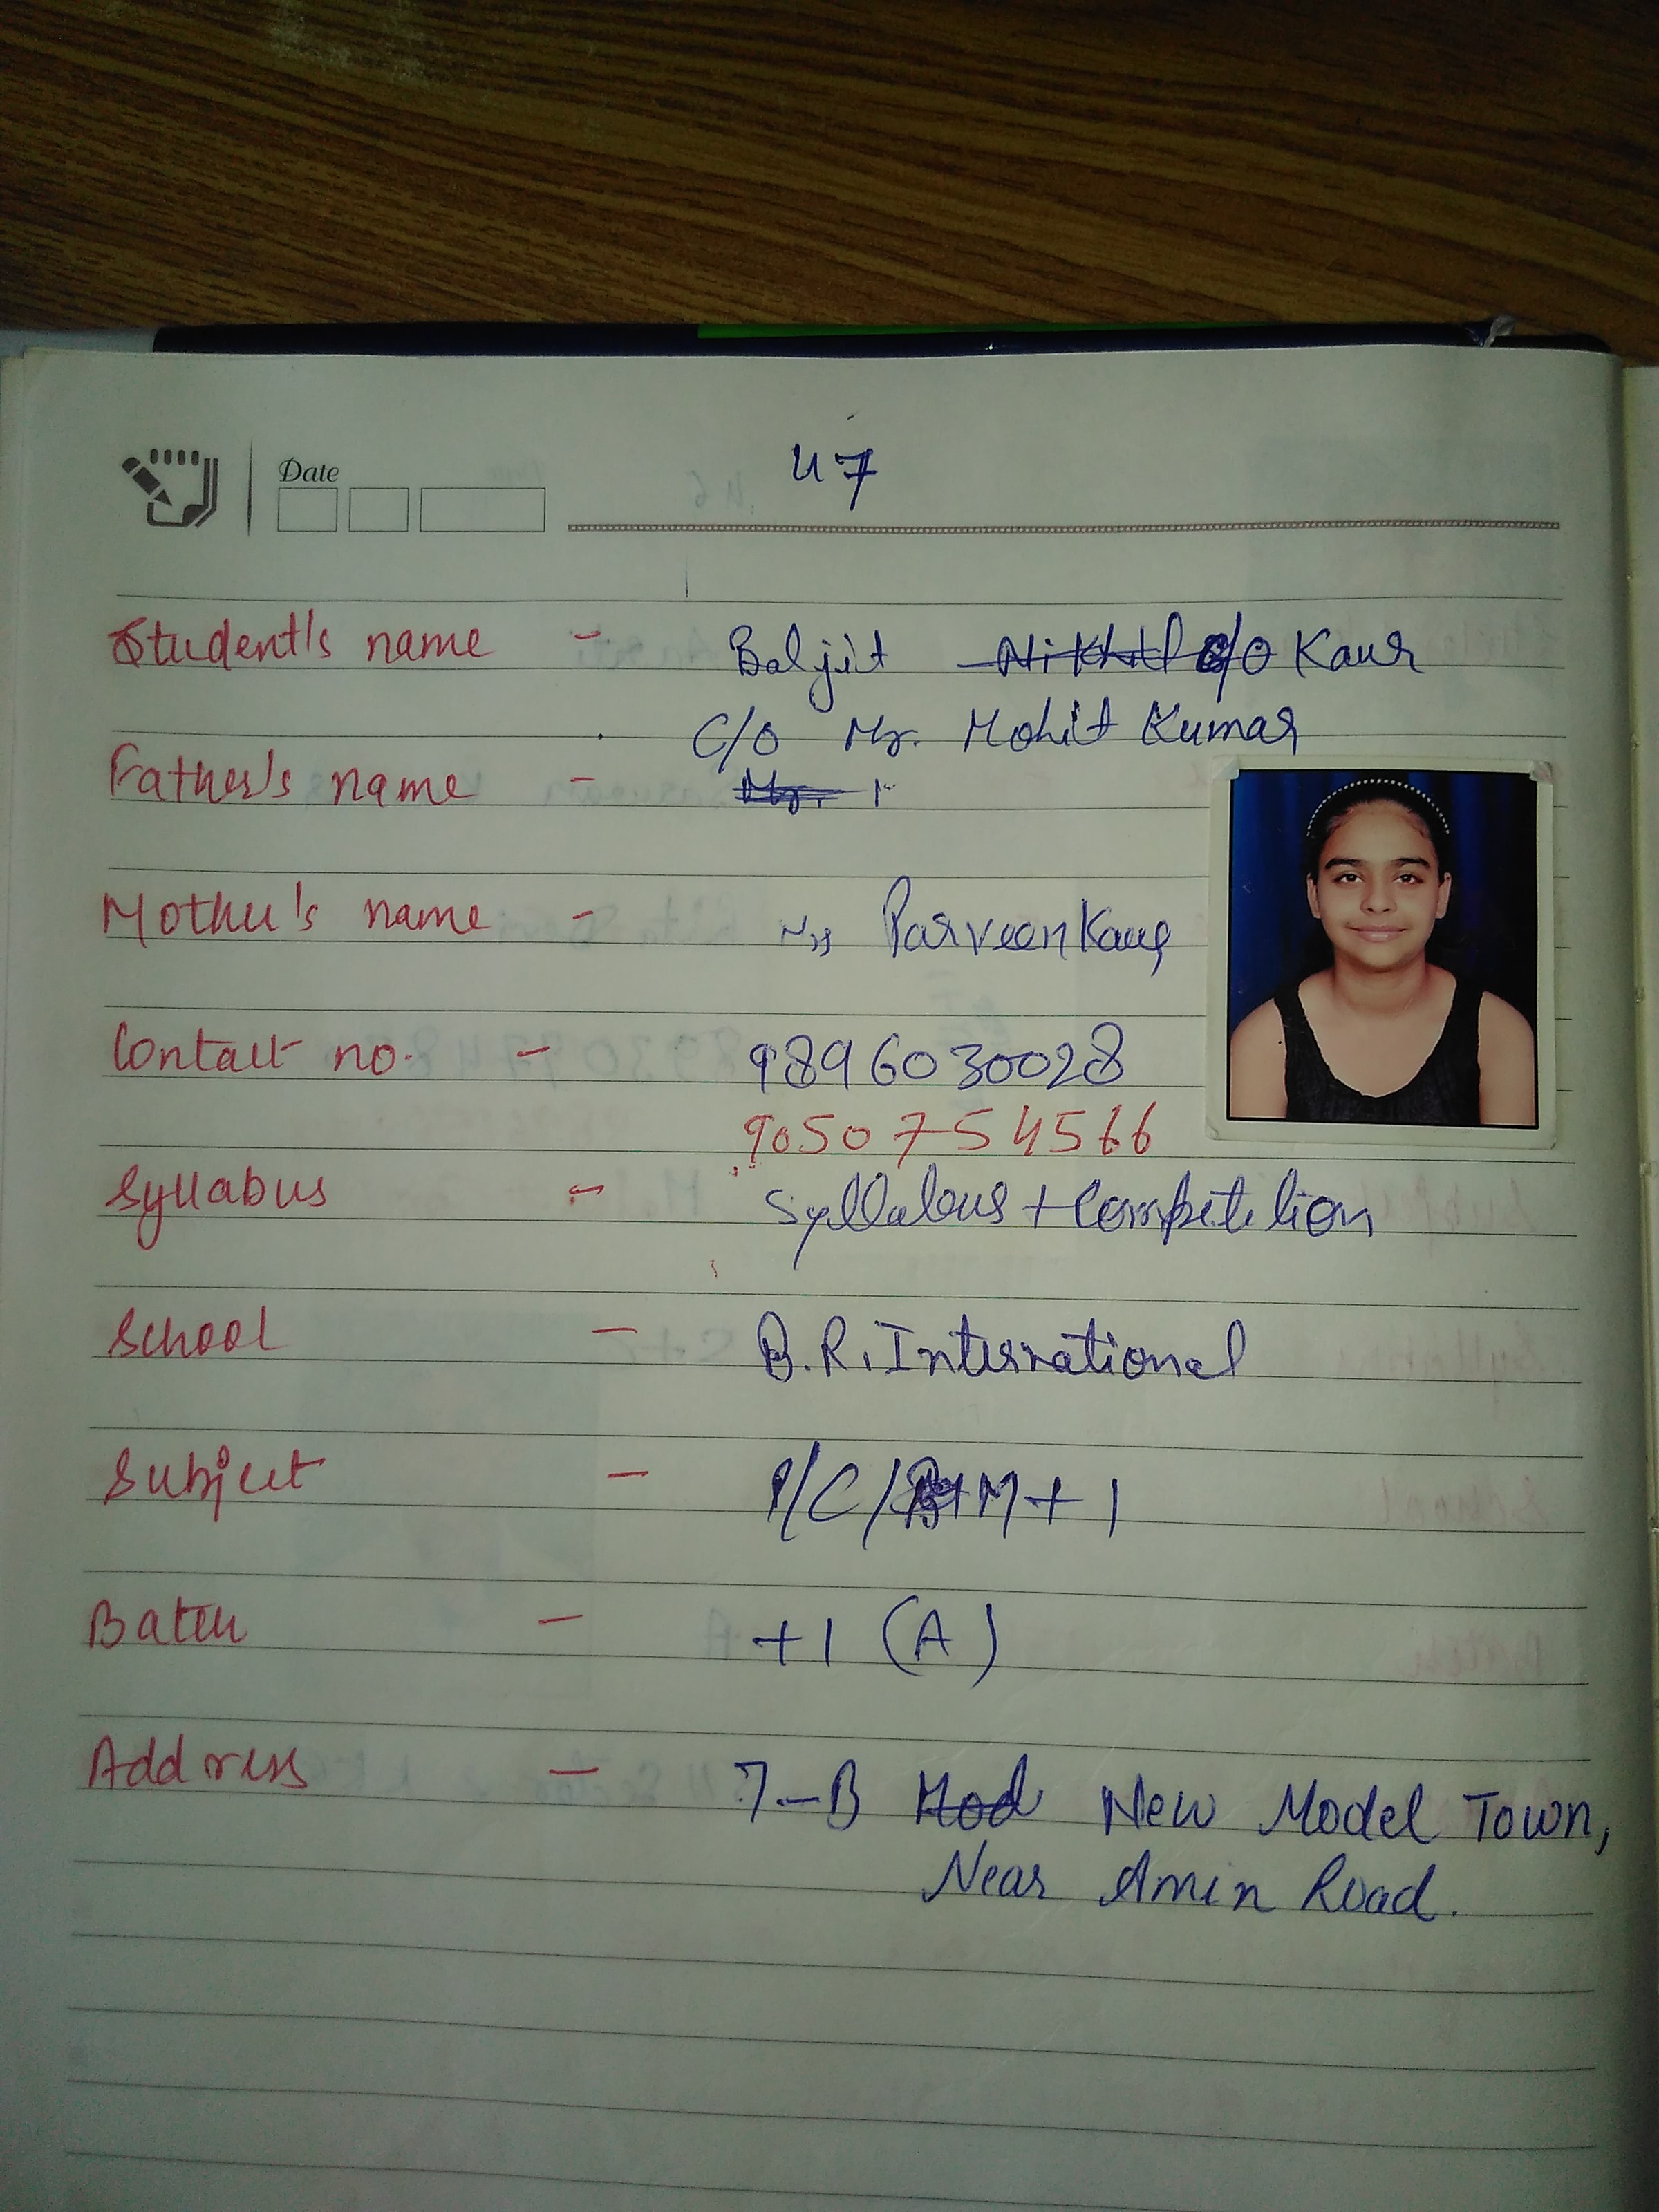 Date
47
Student's name - Baljit Nikhil c/o Kaur
C/o Mr. Mohit Kumar
Father's name - Mr.
Mother's name - Mrs Parveen Kaur
Contact no. - 9896030028
9050754566
Syllabus - Syllabus + Competition
School - B.R. International
Subject - P/C/ M + 1
Batch - +1 (A)
Address - 7-B Mod New Model Town,
Near Amin Road.